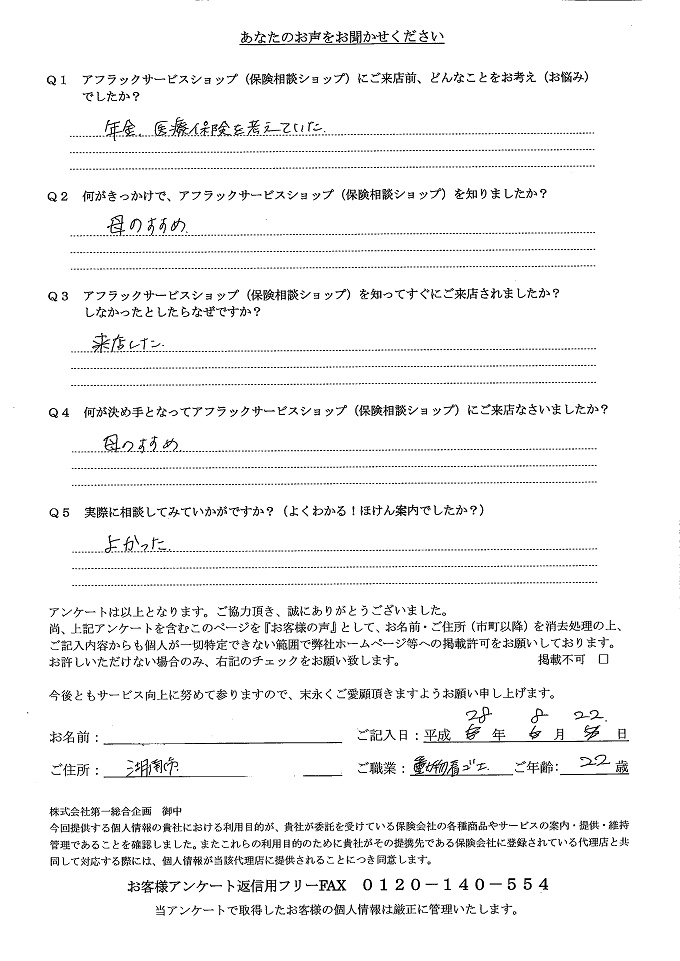 あなたのお声をお聞かせください
Q1 アフラックサービスショップ（保険相談ショップ）にご来店前、どんなことをお考え（お悩み）
でしたか？
年金、医療保険を考えていた.
Q2 何がきっかけで、アフラックサービスショップ（保険相談ショップ）を知りましたか？
母のすすめ.
Q3 アフラックサービスショップ（保険相談ショップ）を知ってすぐにご来店されましたか？
しなかったとしたらなぜですか？
来店した.
Q4 何が決め手となってアフラックサービスショップ（保険相談ショップ）にご来店なさいましたか？
母のすすめ
Q5 実際に相談してみていかがですか？（よくわかる！ほけん案内でしたか？）
よかった.
アンケートは以上となります。ご協力頂き、誠にありがとうございました。
尚、上記アンケートを含むこのページを『お客様の声』として、お名前・ご住所（市町以降）を消去処理の上、
ご記入内容からも個人が一切特定できない範囲で弊社ホームページ等への掲載許可をお願いしております。
お許しいただけない場合のみ、右記のチェックをお願い致します。 掲載不可 □
今後ともサービス向上に努めて参りますので、末永くご愛顧頂きますようお願い申し上げます。
28 8 22.
お名前： ご記入日：平成 年 月 日
ご住所： 湖南市 ご職業： ご年齢： 22 歳
株式会社第一総合企画 御中
今回提供する個人情報の貴社における利用目的が、貴社が委託を受けている保険会社の各種商品やサービスの案内・提供・維持
管理であることを確認しました。またこれらの利用目的のために貴社がその提携先である保険会社に登録されている代理店と共
同して対応する際には、個人情報が当該代理店に提供されることにつき同意します。
お客様アンケート返信用フリーFAX 0120－140－554
当アンケートで取得したお客様の個人情報は厳正に管理いたします。